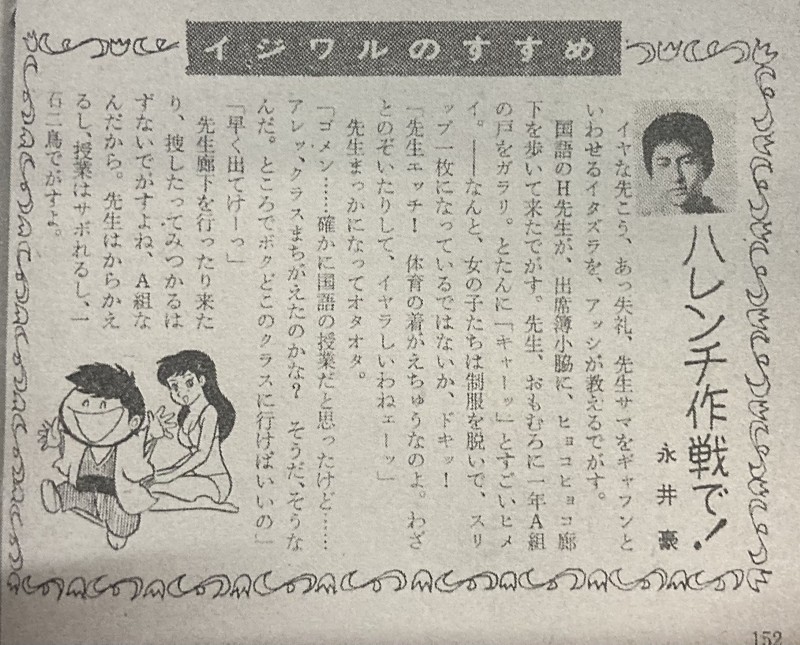 イジワルのすすめ
ハレンチ作戦で!
永井豪
イヤな先こう、あっ失礼、先生サマをギャフンと
いわせるイタズラを、アッシが教えるでがす。
国語のH先生が、出席簿小脇に、ヒョコヒョコ廊
下を歩いて来たでがす。先生、おもむろに一年A組
の戸をガラリ。とたんに「キャーッ」とすごいヒメ
イ。――なんと、女の子たちは制服を脱いで、スリ
ップ一枚になっているではないか、ドキッ!
「先生エッチ! 体育の着がえちゅうなのよ。わざ
とのぞいたりして、イヤらしいわねェーッ」
先生まっかになってオタオタ。
「ゴメン……確かに国語の授業だと思ったけど……
アレッ、クラスまちがえたのかな? そうだ、そうな
んだ。ところでボクどこのクラスに行けばいいの」
「早く出てけーっ」
先生廊下を行ったり来た
り、捜したってみつかるは
ずないでがすよね、A組な
んだから。先生はからかえ
るし、授業はサボれるし、一
石二鳥でがすよ。
152